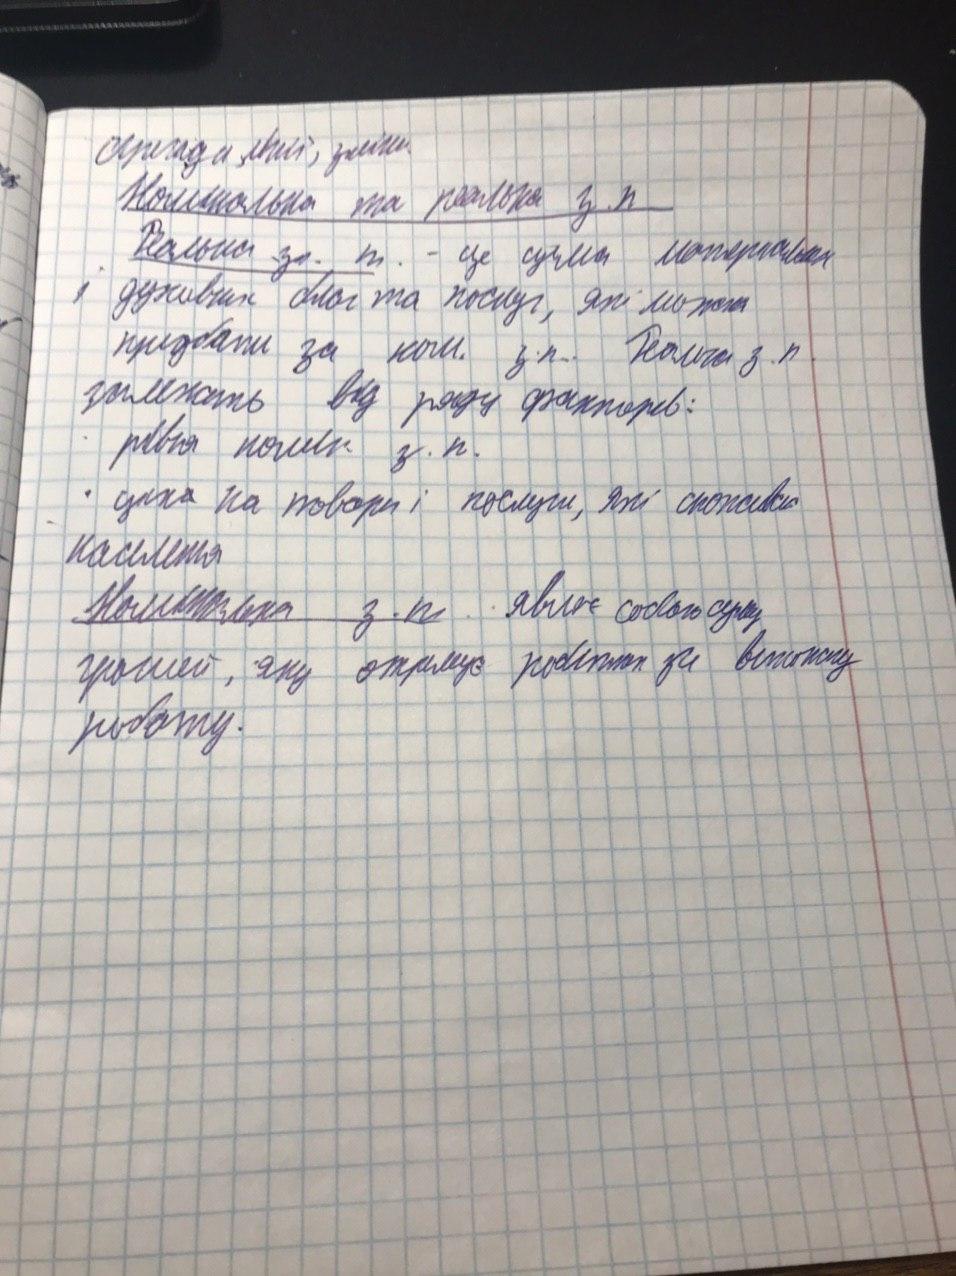 Номінальна та реальна з.п
Реальна з. п. - це сума матеріальн
і духовних благ та послуг, які можна
придбати за ном. з.п. Реальна з.п.
залежать від ряду факторів:
рівня номін. з.п.
· ціна на товари і послуги, які споживає
населення
Номінальна з.п. являє собою суму
грошей, яку отримує робітник за виконану
роботу.